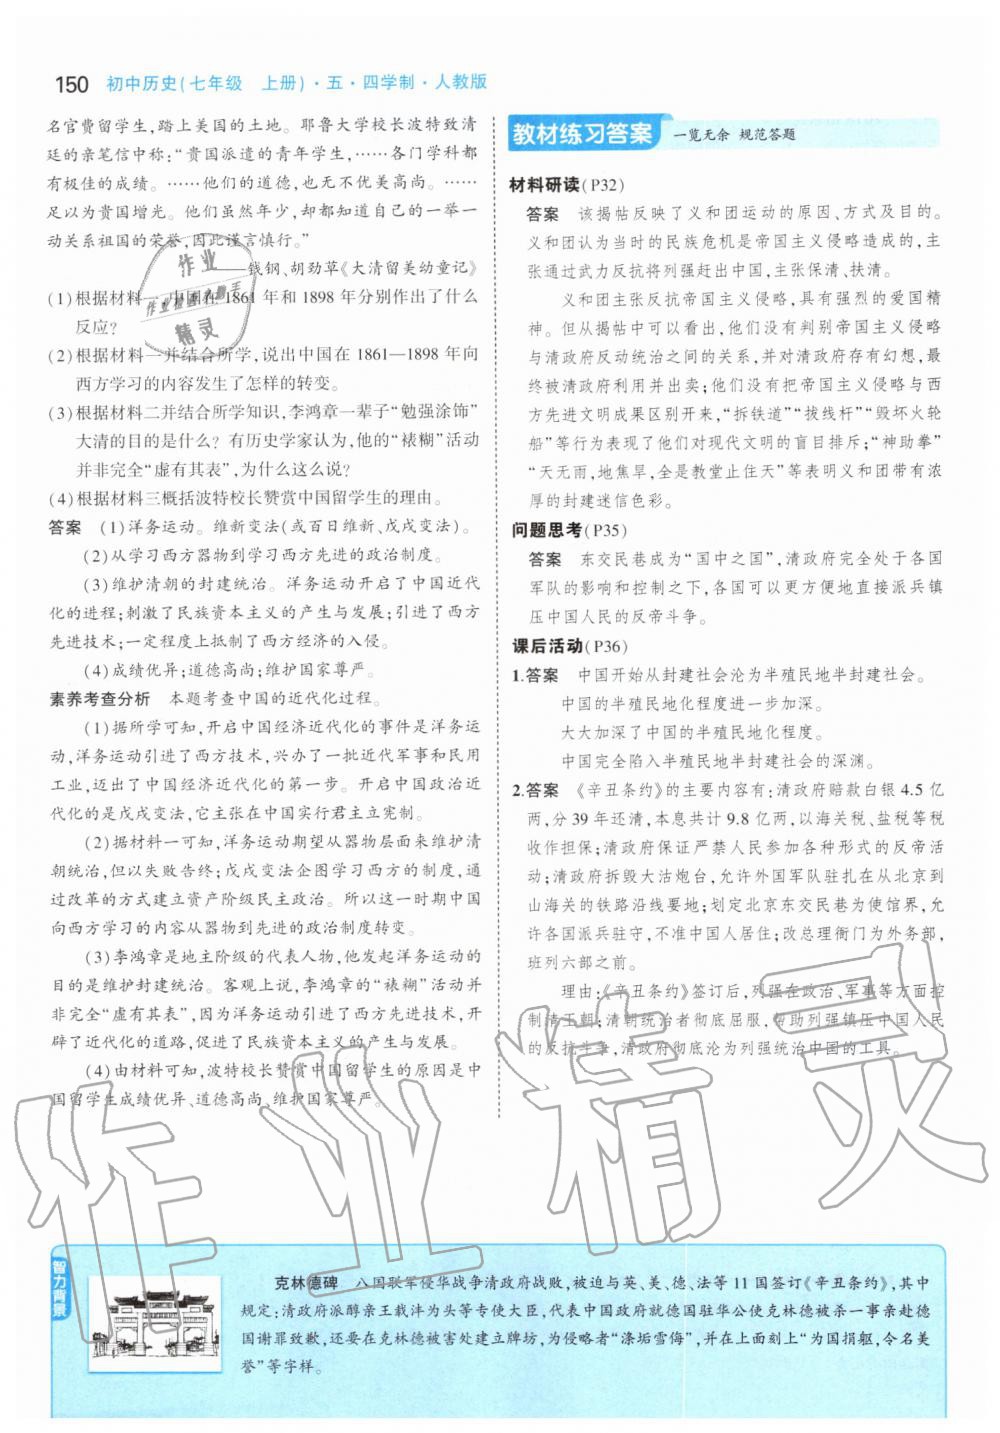 150 初中历史(七年级 上册)·五·四学制·人教版
名官费留学生,踏上美国的土地。耶鲁大学校长波特致清
廷的亲笔信中称:“贵国派遣的青年学生,……各门学科都
有极佳的成绩。……他们的道德,也无不优美高尚。……
足以为贵国增光。他们虽然年少,却都知道自己的一举一
动关系祖国的荣誉,因此谨言慎行。”
——钱钢、胡劲草《大清留美幼童记》
(1)根据材料一,中国在1861年和1898年分别作出了什么
反应?
(2)根据材料一并结合所学,说出中国在1861—1898年向
西方学习的内容发生了怎样的转变。
(3)根据材料二并结合所学知识,李鸿章一辈子“勉强涂饰”
大清的目的是什么?有历史学家认为,他的“裱糊”活动
并非完全“虚有其表”,为什么这么说?
(4)根据材料三概括波特校长赞赏中国留学生的理由。
答案 (1)洋务运动。维新变法(或百日维新、戊戌变法)。
(2)从学习西方器物到学习西方先进的政治制度。
(3)维护清朝的封建统治。洋务运动开启了中国近代
化的进程;刺激了民族资本主义的产生与发展;引进了西方
先进技术;一定程度上抵制了西方经济的入侵。
(4)成绩优异;道德高尚;维护国家尊严。
素养考查分析 本题考查中国的近代化过程。
(1)据所学可知,开启中国经济近代化的事件是洋务运
动,洋务运动引进了西方技术,兴办了一批近代军事和民用
工业,迈出了中国经济近代化的第一步。开启中国政治近
代化的是戊戌变法,它主张在中国实行君主立宪制。
(2)据材料一可知,洋务运动期望从器物层面来维护清
朝统治,但以失败告终;戊戌变法企图学习西方的制度,通
过改革的方式建立资产阶级民主政治。所以这一时期中国
向西方学习的内容从器物到先进的政治制度转变。
(3)李鸿章是地主阶级的代表人物,他发起洋务运动的
目的是维护封建统治。客观上说,李鸿章的“裱糊”活动并
非完全“虚有其表”,因为洋务运动引进了西方先进技术,开
辟了近代化的道路,促进了民族资本主义的产生与发展。
(4)由材料可知,波特校长赞赏中国留学生的原因是中
国留学生成绩优异、道德高尚、维护国家尊严。
教材练习答案 一览无余 规范答题
材料研读(P32)
答案 该揭帖反映了义和团运动的原因、方式及目的。
义和团认为当时的民族危机是帝国主义侵略造成的,主
张通过武力反抗将列强赶出中国,主张保清、扶清。
义和团主张反抗帝国主义侵略,具有强烈的爱国精
神。但从揭帖中可以看出,他们没有判别帝国主义侵略
与清政府反动统治之间的关系,并对清政府存有幻想,最
终被清政府利用并出卖;他们没有把帝国主义侵略与西
方先进文明成果区别开来,“拆铁道”“拔线杆”“毁坏火轮
船”等行为表现了他们对现代文明的盲目排斥;“神助拳”
“天无雨,地焦旱,全是教堂止住天”等表明义和团带有浓
厚的封建迷信色彩。
问题思考(P35)
答案 东交民巷成为“国中之国”,清政府完全处于各国
军队的影响和控制之下,各国可以更方便地直接派兵镇
压中国人民的反帝斗争。
课后活动(P36)
1.答案 中国开始从封建社会沦为半殖民地半封建社会。
中国的半殖民地化程度进一步加深。
大大加深了中国的半殖民地化程度。
中国完全陷入半殖民地半封建社会的深渊。
2.答案 《辛丑条约》的主要内容有:清政府赔款白银4.5亿
两,分39年还清,本息共计9.8亿两,以海关税、盐税等税
收作担保;清政府保证严禁人民参加各种形式的反帝活
动;清政府拆毁大沽炮台,允许外国军队驻扎在从北京到
山海关的铁路沿线要地;划定北京东交民巷为使馆界,允
许各国派兵驻守,不准中国人居住;改总理衙门为外务部,
班列六部之前。
理由:《辛丑条约》签订后,列强在政治、军事等方面控
制清王朝;清朝统治者彻底屈服,帮助列强镇压中国人民
的反抗斗争,清政府彻底沦为列强统治中国的工具。
智力背景
克林德碑 八国联军侵华战争清政府战败,被迫与英、美、德、法等11国签订《辛丑条约》,其中
规定:清政府派醇亲王载沣为头等专使大臣,代表中国政府就德国驻华公使克林德被杀一事亲赴德
国谢罪致歉,还要在克林德被害处建立牌坊,为侵略者“涤垢雪侮”,并在上面刻上“为国捐躯,令名美
誉”等字样。
作业精灵